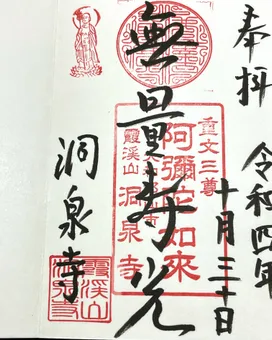 奉拝
令和四年
十月三十日
無量寿光
重文三尊
阿彌陀如來
霞渓山 洞泉寺
洞泉寺
霞渓山